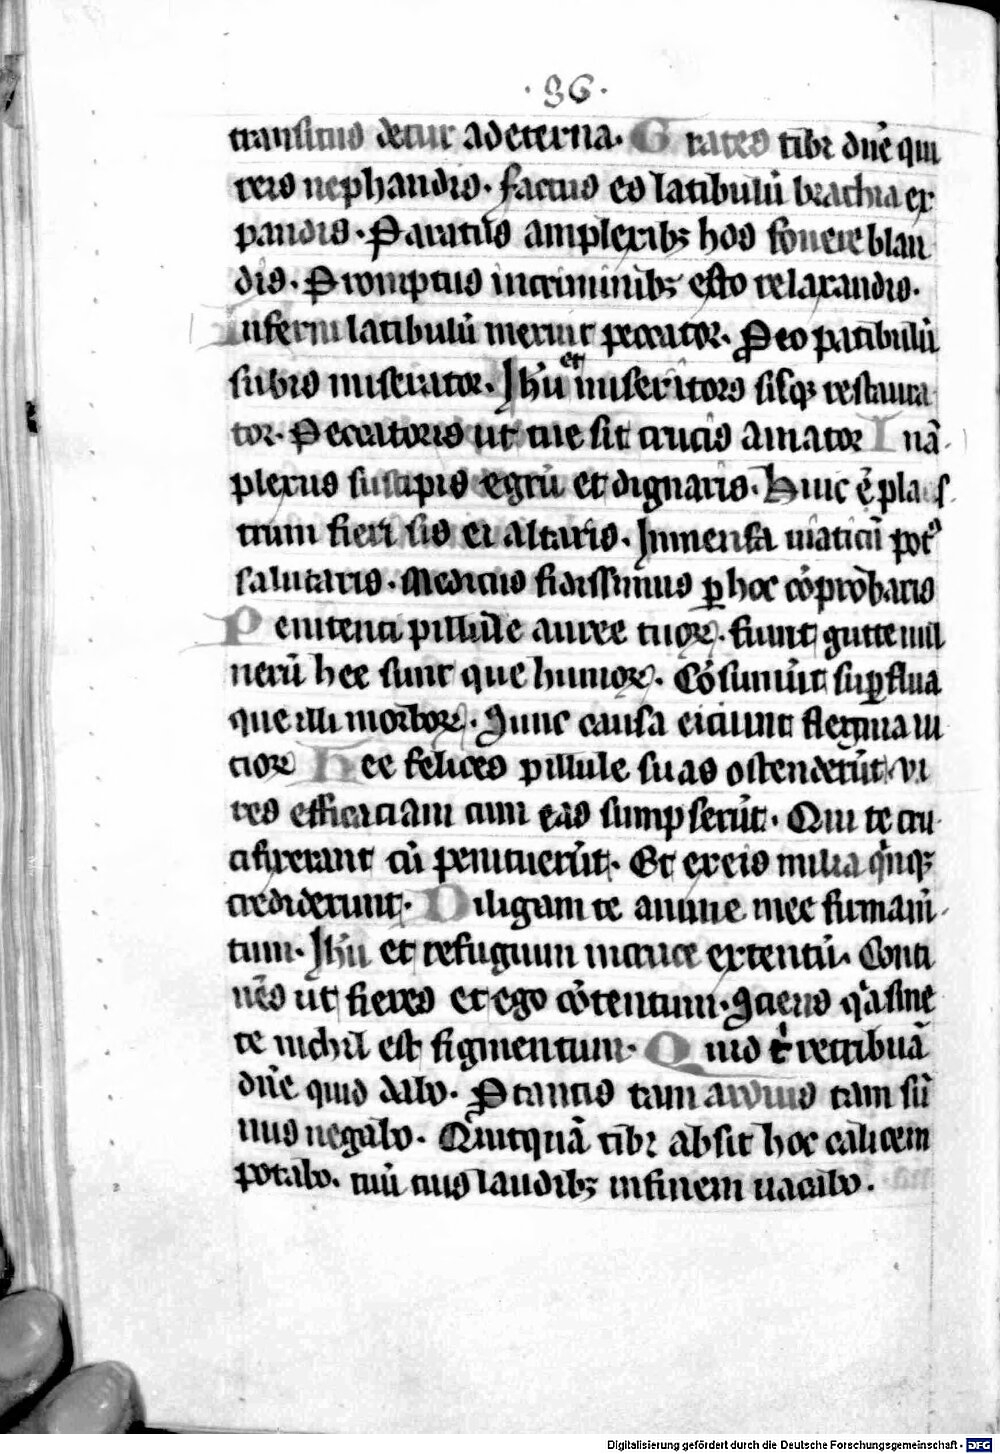 ·36·
transitus detur ad eterna. Grates tibi dn̄e qui
reis nephandis. Factus es latibulū brachia ex
pandis. Paratus amplexibꝫ hos fovere blan
dis. Promptus in criminibꝫ esto relaxandis.
Inferni latibulū meruit peccator. Pro patibulū
subis miserator. Jhū et miseritors sisqꝫ restaura
tor. Peccatoris ut tue sit crucis amator In ā
plexus suscipis egrū et dignaris. Huic ē plaus
trum fieri sis ei altaris. Immensa viaticū
salutaris. Medicus fidissimus ꝑ hoc cōprobaris
Penitenti pillule auree tuoꝝ. fiunt gutte vul
nerū hee sunt que humoꝝ. Cōsumūt suꝑflua
que illi morboꝝ. Hinc causa eiciunt flegma vi
cioꝝ Hee felices pillule suas ostenderūt vi
res efficaciam cum eas sumpserūt. Qui te cru
cifixerant cū penituerūt. Et ex eis milia qͥnqꝫ
crediderunt. Diligam te anime mee firmam̄
tum. Jhū et refugium in cruce extentū. Conti
nēs ut fieres et ego cōtentum. sine
te nichil est figmentum. Quid retribuā
dn̄e quid dabo. P tantis tam arduis tam sū
mus negabo. Quitquā tibi absit hoc calicem
potabo. tuis laudibꝫ in finem vacabo.
Digitalisierung gefördert durch die Deutsche Forschungsgemeinschaft - DFG